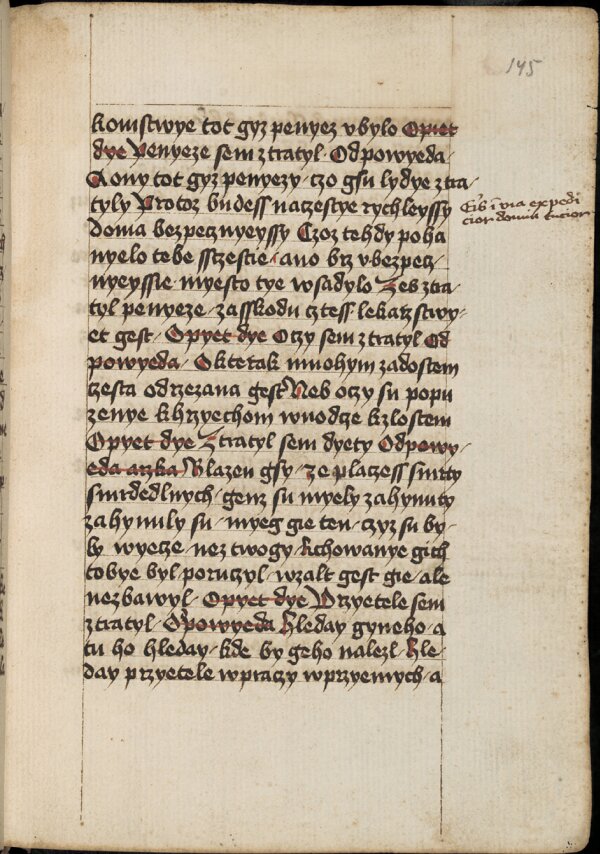 145
komstwye tot gyz penyez vbylo Opiet
dye Penyeze sem ztratyl Odpowyeda
A ony tot gyz penyezy czo gsu lydye ztra
tyly Protoz budess naczestye rychleyssy
Doma bezpecznyeyssy Czoz tehdy poha
nyelo tebe ssczestie ano brz vbezpecz
nyeyssie myesto tye wsadylo Zes ztra
tyl penyeze zasskodu cztess lekarzstwy
et gest Opyet dye Oczy sem ztratyl Od
powyeda O kterak mnohym zadostem
czesta odrzezana gest Neb oczy su popu
zenye khrzyechom wuodcze kzlostem
Opyet dye Ztratyl sem dyety Odpowy
eda arzka Blazen gsy ze placzess smrty
smrdedlnych genz su myely zahynuty
zahynuly su nyeg gie ten czyz su by
ly wyecze nez twogy kchowanye gich
tobye byl poruczyl wzalt gest gie ale
nezbawyl Opyet dye Przyetele sem
ztratyl Opowyeda hleday gyneho a
tu ho hleday kde by geho nalezl hle
day przyetele wpraczy wprzyemych a